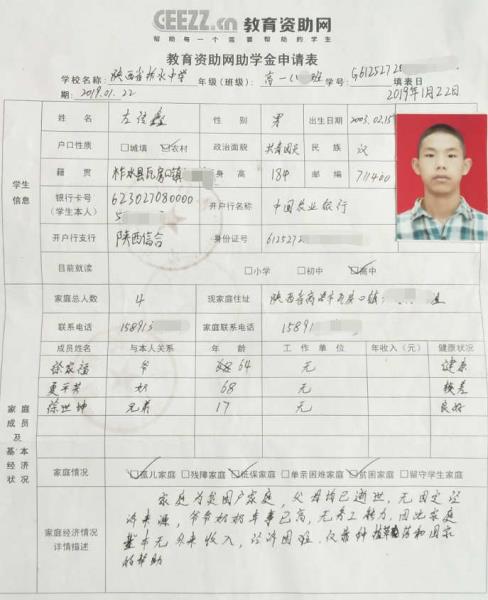 CEEZZ.cn 教育资助网
帮助每一个需要帮助的学生
教育资助网助学金申请表
学校名称: 陕西省柞水中学 年级(班级): 高一 班 学号: G6125272 填表日
期: 2019.01.22 2019年1月22日
姓名 性别 男 出生日期 2003.02.15
户口性质 □城镇 ☑农村 政治面貌 共青团员 民族 汉
籍贯 柞水县瓦房口镇 身高 184 邮编 711400
学生
信息
银行卡号
(学生本人)
623027080000
开户行名称 中国农业银行
开户行支行 陕西信合 身份证号 6125272
目前就读 □小学 □初中 ☑高中
家庭总人数 4 现家庭住址 陕西省商洛市 房口镇
联系电话 15891 家庭联系电话 15891
成员姓名 与本人关系 年龄 工作单位 年收入(元) 健康状况
徐家福 爷 64 无 健康
夏平芳 奶 68 无 较差
徐世坤 兄弟 17 无 良好
家庭
成员
及
基本
经济
状况
家庭情况 ☑孤儿家庭 □残障家庭 ☑低保家庭 □单亲困难家庭 ☑贫困家庭 □留守学生家庭
家庭经济情况
详情描述
家庭为贫困户家庭,父母均已逝世,无固定经
济来源,爷爷奶奶年事已高,无劳工转力,因此家庭
基本无外来收入,经济困难,仅靠种植 药和国家
的帮助